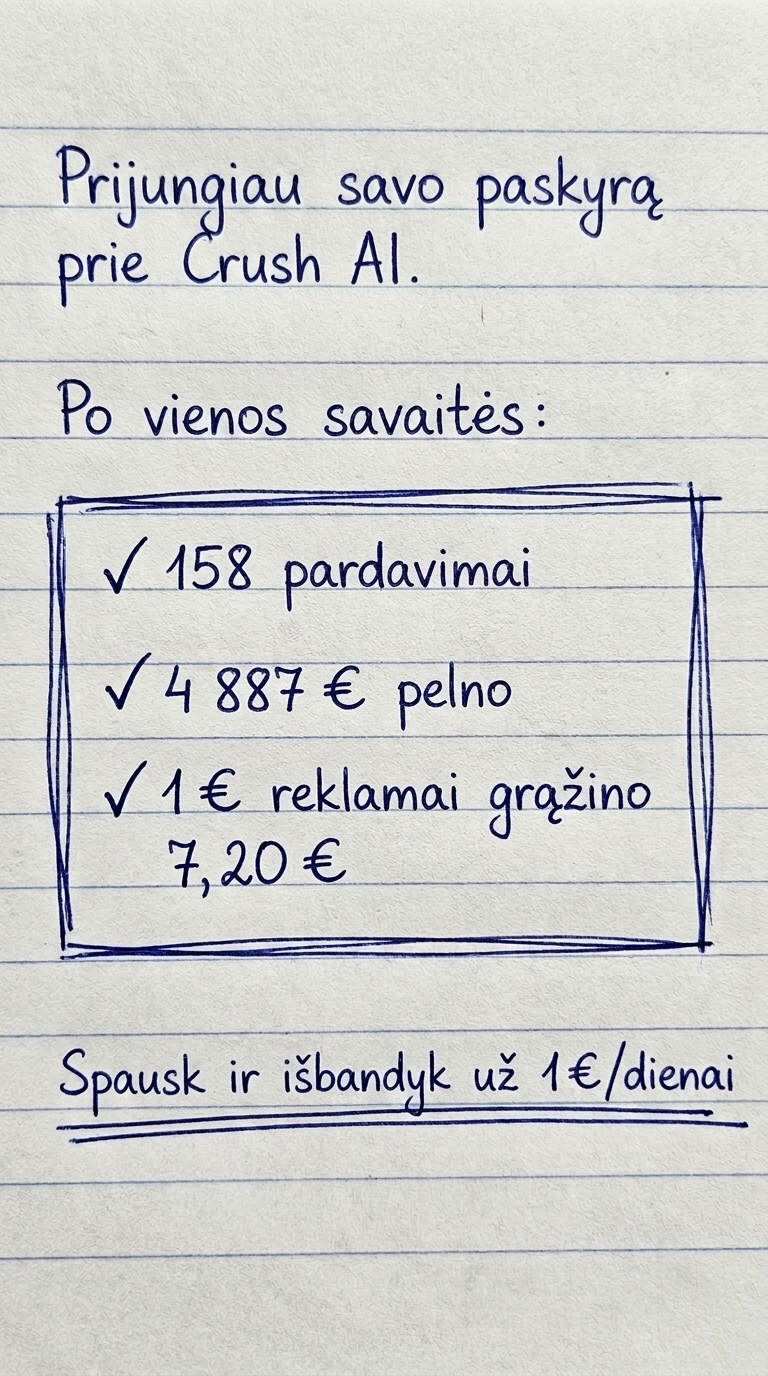 Prijungiau savo paskyrą
prie Crush AI.
Po vienos savaitės:
✓ 158 pardavimai
✓ 4 887 € pelno
✓ 1 € reklamai grąžino
7,20 €
Spausk ir išbandyk už 1€/dienai